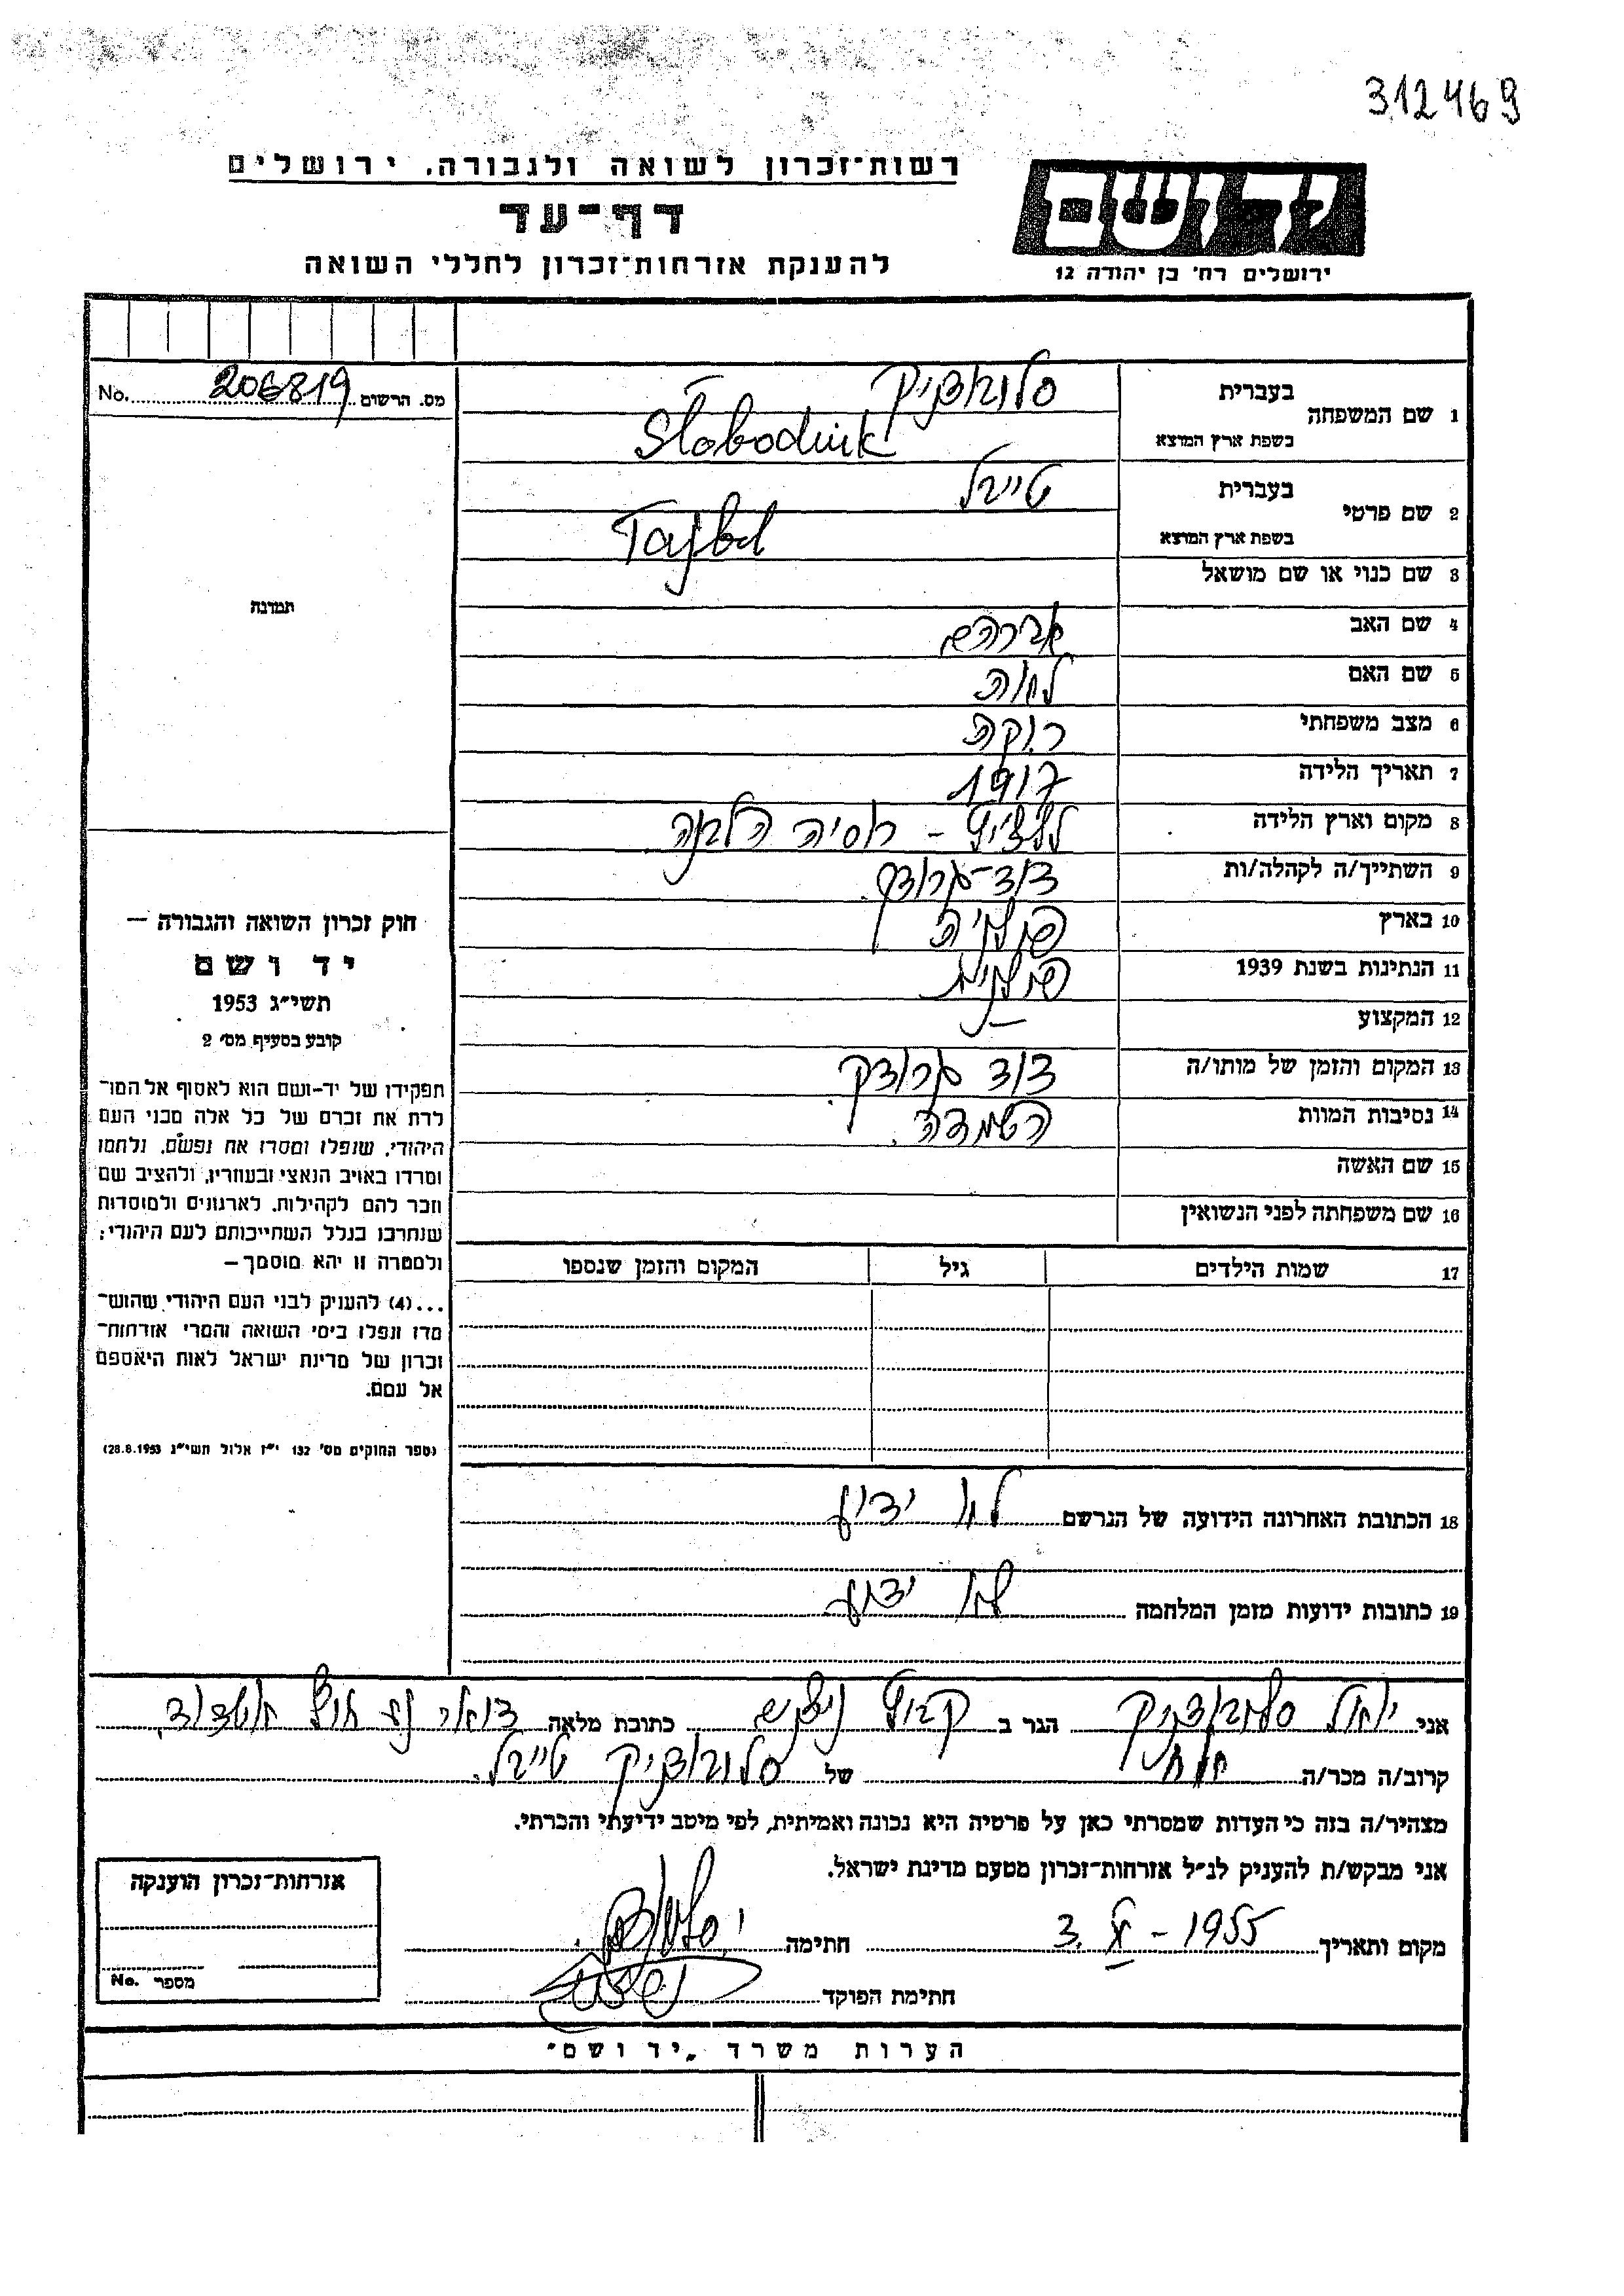 312469
רשות־זכרון לשואה ולגבורה, ירושלים
יד ושם
דף־עד
להענקת אזרחות־זכרון לחללי השואה
ירושלים רח׳ בן יהודה 12
מס. הרשום 206819 No.
1 שם המשפחה
בעברית סלובודניק
בשפת ארץ המוצא Slobodnik
2 שם פרטי
בעברית טייבל
בשפת ארץ המוצא Tajbel
3 שם כנוי או שם מושאל
4 שם האב אברהם
5 שם האם
6 מצב משפחתי רוקה
7 תאריך הלידה 1917
8 מקום וארץ הלידה רוסיה הלבנה
9 השתייך/ה לקהלה/ות דוד-גרודק
10 בארץ פולניה
11 הנתינות בשנת 1939 פולנית
12 המקצוע —
13 המקום והזמן של מותו/ה דוד גרודק
14 נסיבות המוות השמדה
15 שם האשה
16 שם משפחתה לפני הנשואין
17 שמות הילדים גיל המקום והזמן שנספו
18 הכתובת האחרונה הידועה של הנרשם לא ידוע
19 כתובות ידועות מזמן המלחמה לא ידוע
תמונה
חוק זכרון השואה והגבורה —
יד ושם
תשי״ג 1953
קובע בסעיף מס׳ 2
תפקידו של יד-ושם הוא לאסוף אל המו־
לדת את זכרם של כל אלה מבני העם
היהודי, שנפלו ומסרו את נפשם, נלחמו
ומרדו באויב הנאצי ובעוזריו, ולהציב שם
וזכר להם לקהילות, לארגונים ולמוסדות
שנחרבו בגלל השתייכותם לעם היהודי;
ולמטרה זו יהא מוסמך —
...(4) להעניק לבני העם היהודי שהוש־
מדו ונפלו בימי השואה והמרי אזרחות־
זכרון של מדינת ישראל לאות היאספם
אל עמם.
(ספר החוקים מס׳ 132 י״ז אלול תשי״ג 28.8.1953)
אני יואל סלובודניק הגר ב קבוץ ניצנים כתובת מלאה דואר נע חוף אשדוד
קרוב/ה מכר/ה אח של סלובודניק טייבל.
מצהיר/ה בזה כי העדות שמסרתי כאן על פרטיה היא נכונה ואמיתית, לפי מיטב ידיעתי והכרתי.
אני מבקש/ת להעניק לנ״ל אזרחות־זכרון מטעם מדינת ישראל.
מקום ותאריך 1955 חתימה
חתימת הפוקד
אזרחות־זכרון הוענקה
מספר No.
הערות משרד „יד ושם״